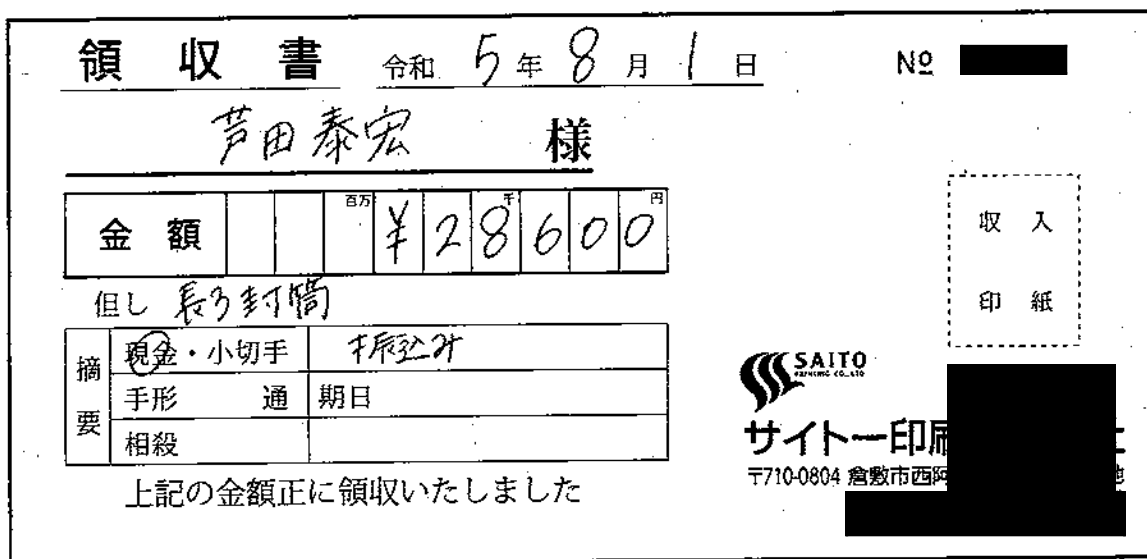 領収書 令和 5年 8月 1日 №
芦田泰宏 様
金額 百万 千 円 ¥28600
但し 長3封筒
摘要
現金・小切手 振込み
手形 通 期日
相殺
上記の金額正に領収いたしました
収入
印紙
SAITO
PRINTING CO.,LTD
サイトー印刷
〒710-0804 倉敷市西阿